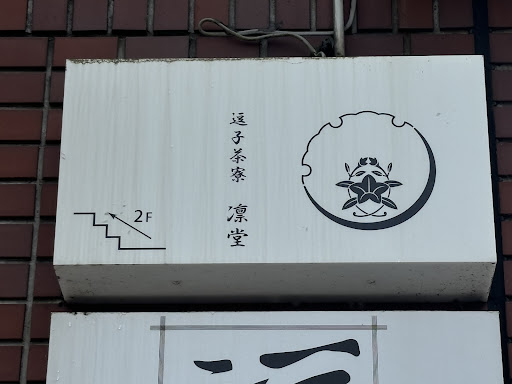 逗子茶寮 凛堂
2F